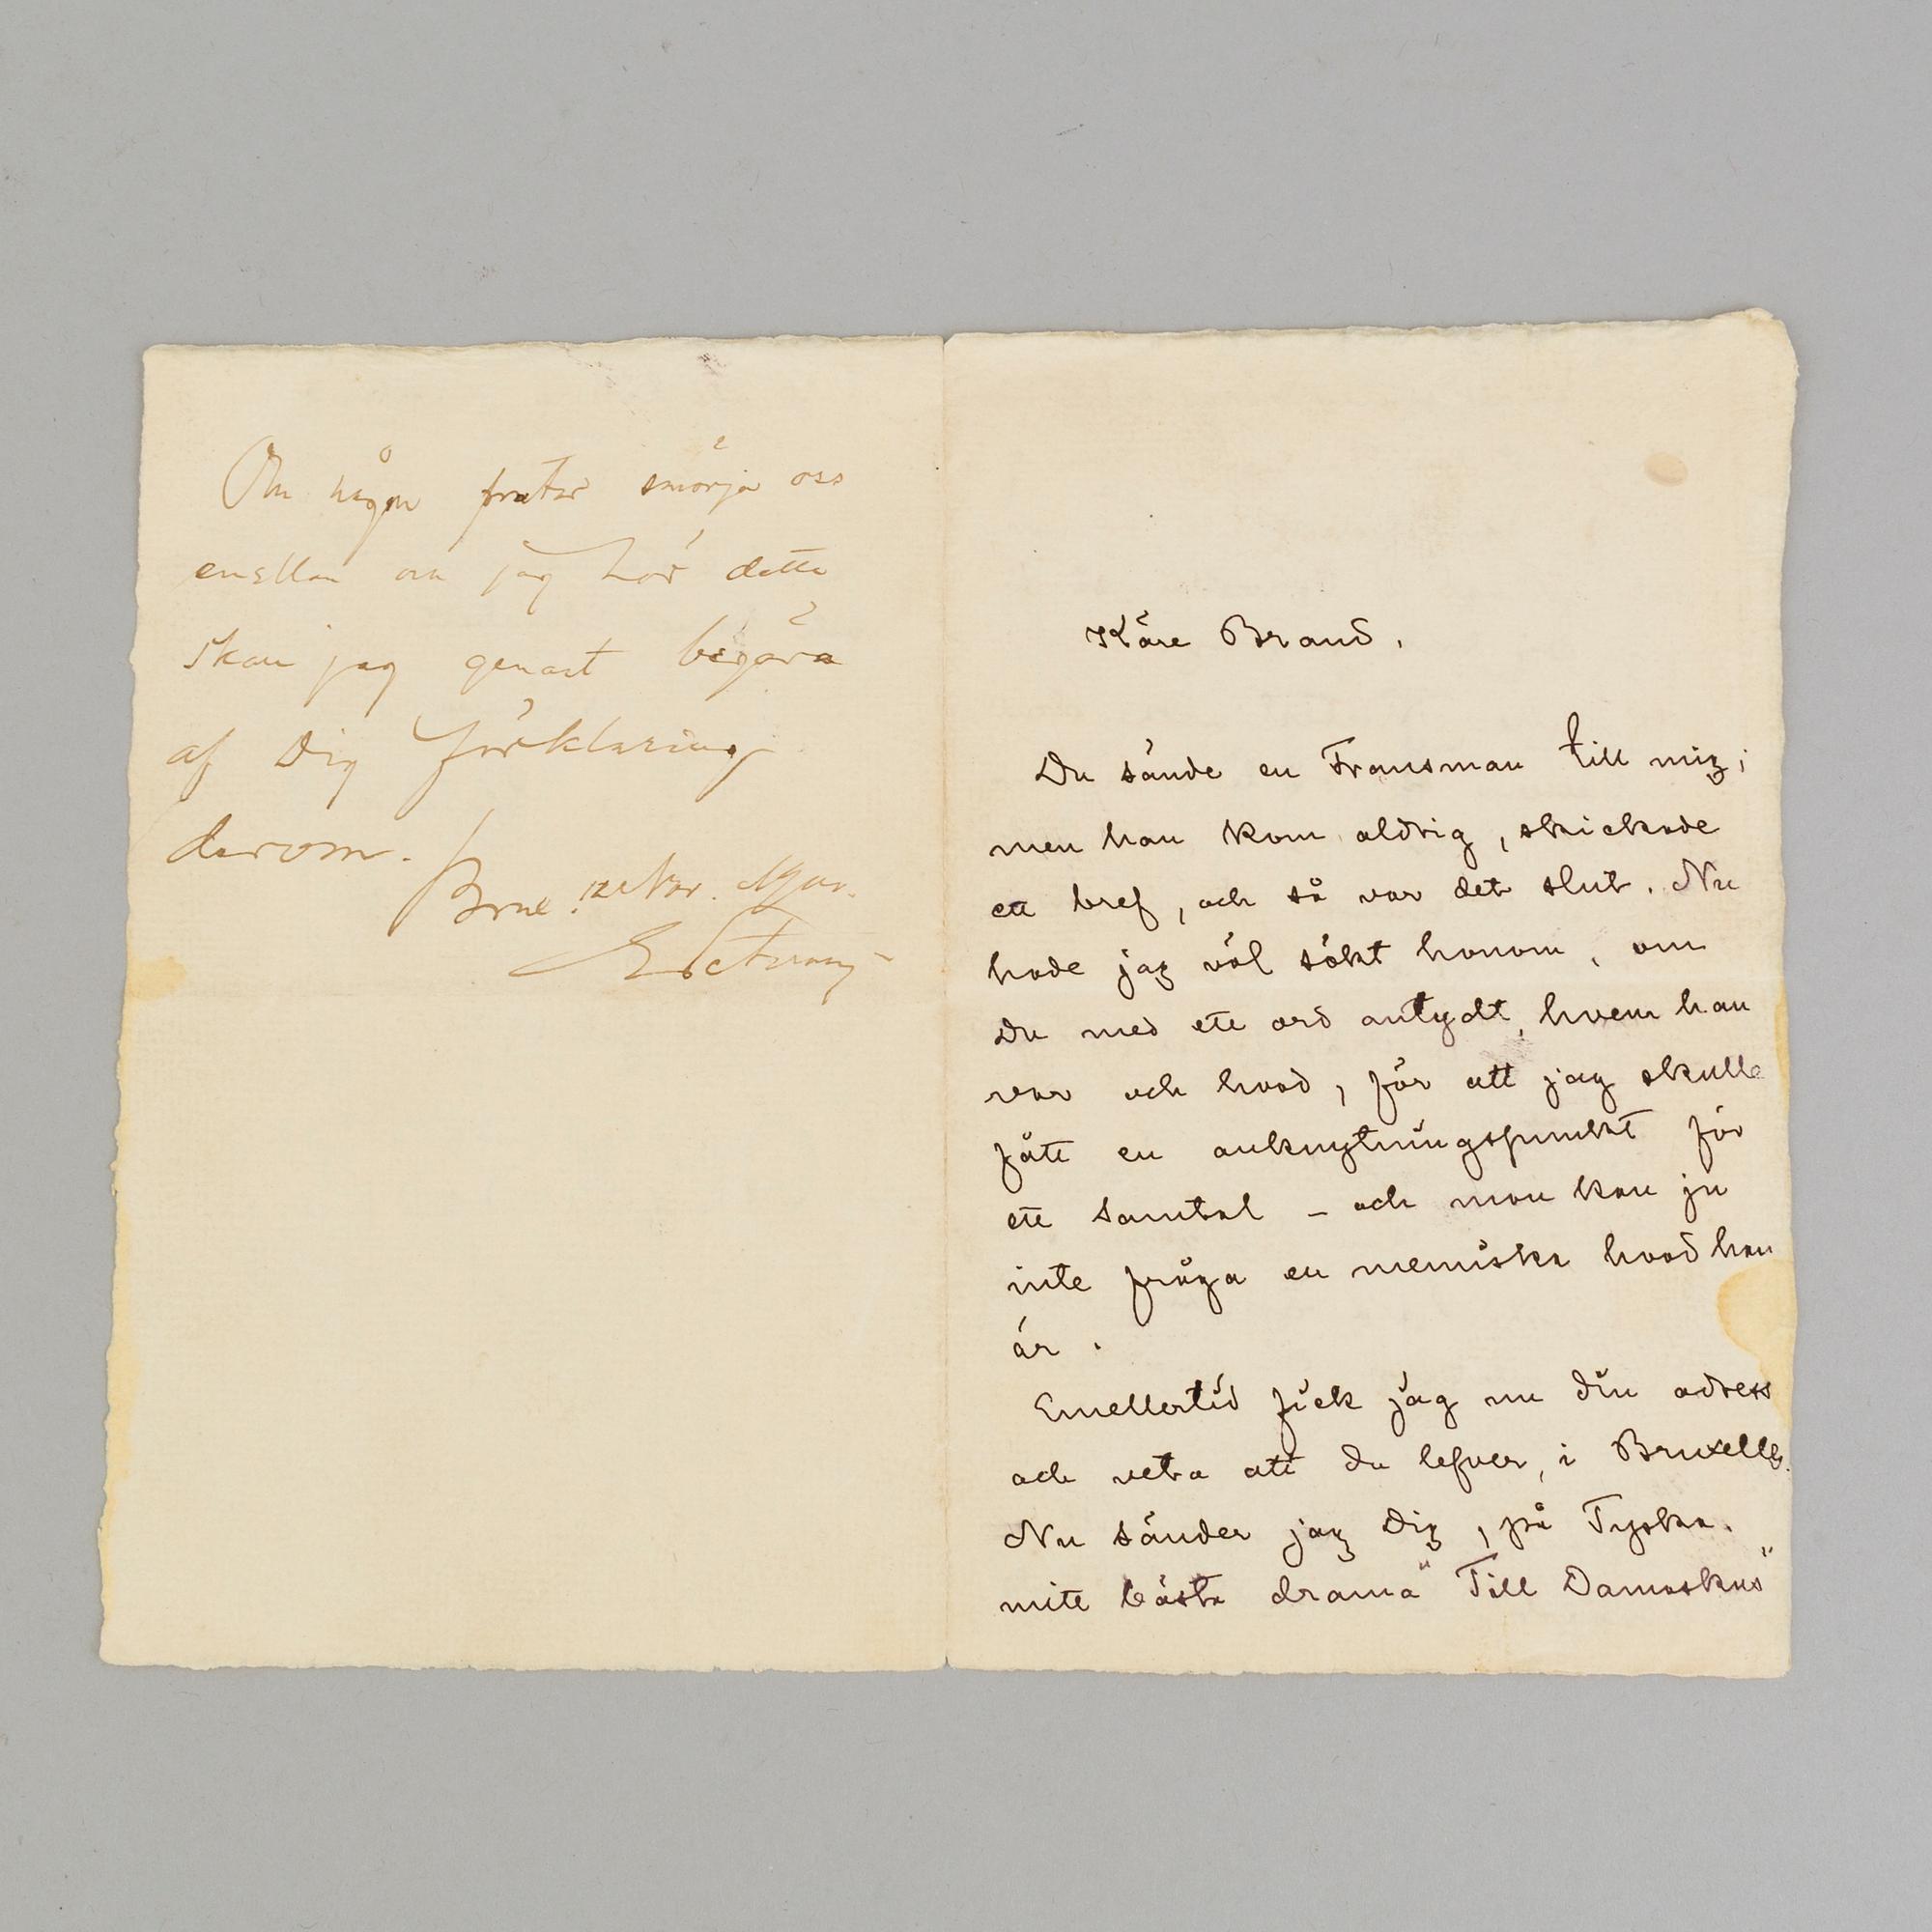 Om någon pratar smörja oss
emellan om jag hör detta
skall jag genast begära
af Dig förklaring
derom.
Käre Brand,
Du sände en Fransman till mig;
men han kom aldrig, skickade
ett bref, och så var det slut. Nu
hade jag väl sökt honom, om
Du med ett ord antydt, hvem han
var och hvad, för att jag skulle
fått en anknytningspunkt för
ett samtal – och man kan ju
inte fråga en menniska hvad han
är.
Emellertid fick jag nu din adress
och veta att du lefver, i Bruxelles.
Nu sänder jag Dig, på Tyska,
mitt bästa drama "Till Damaskus"